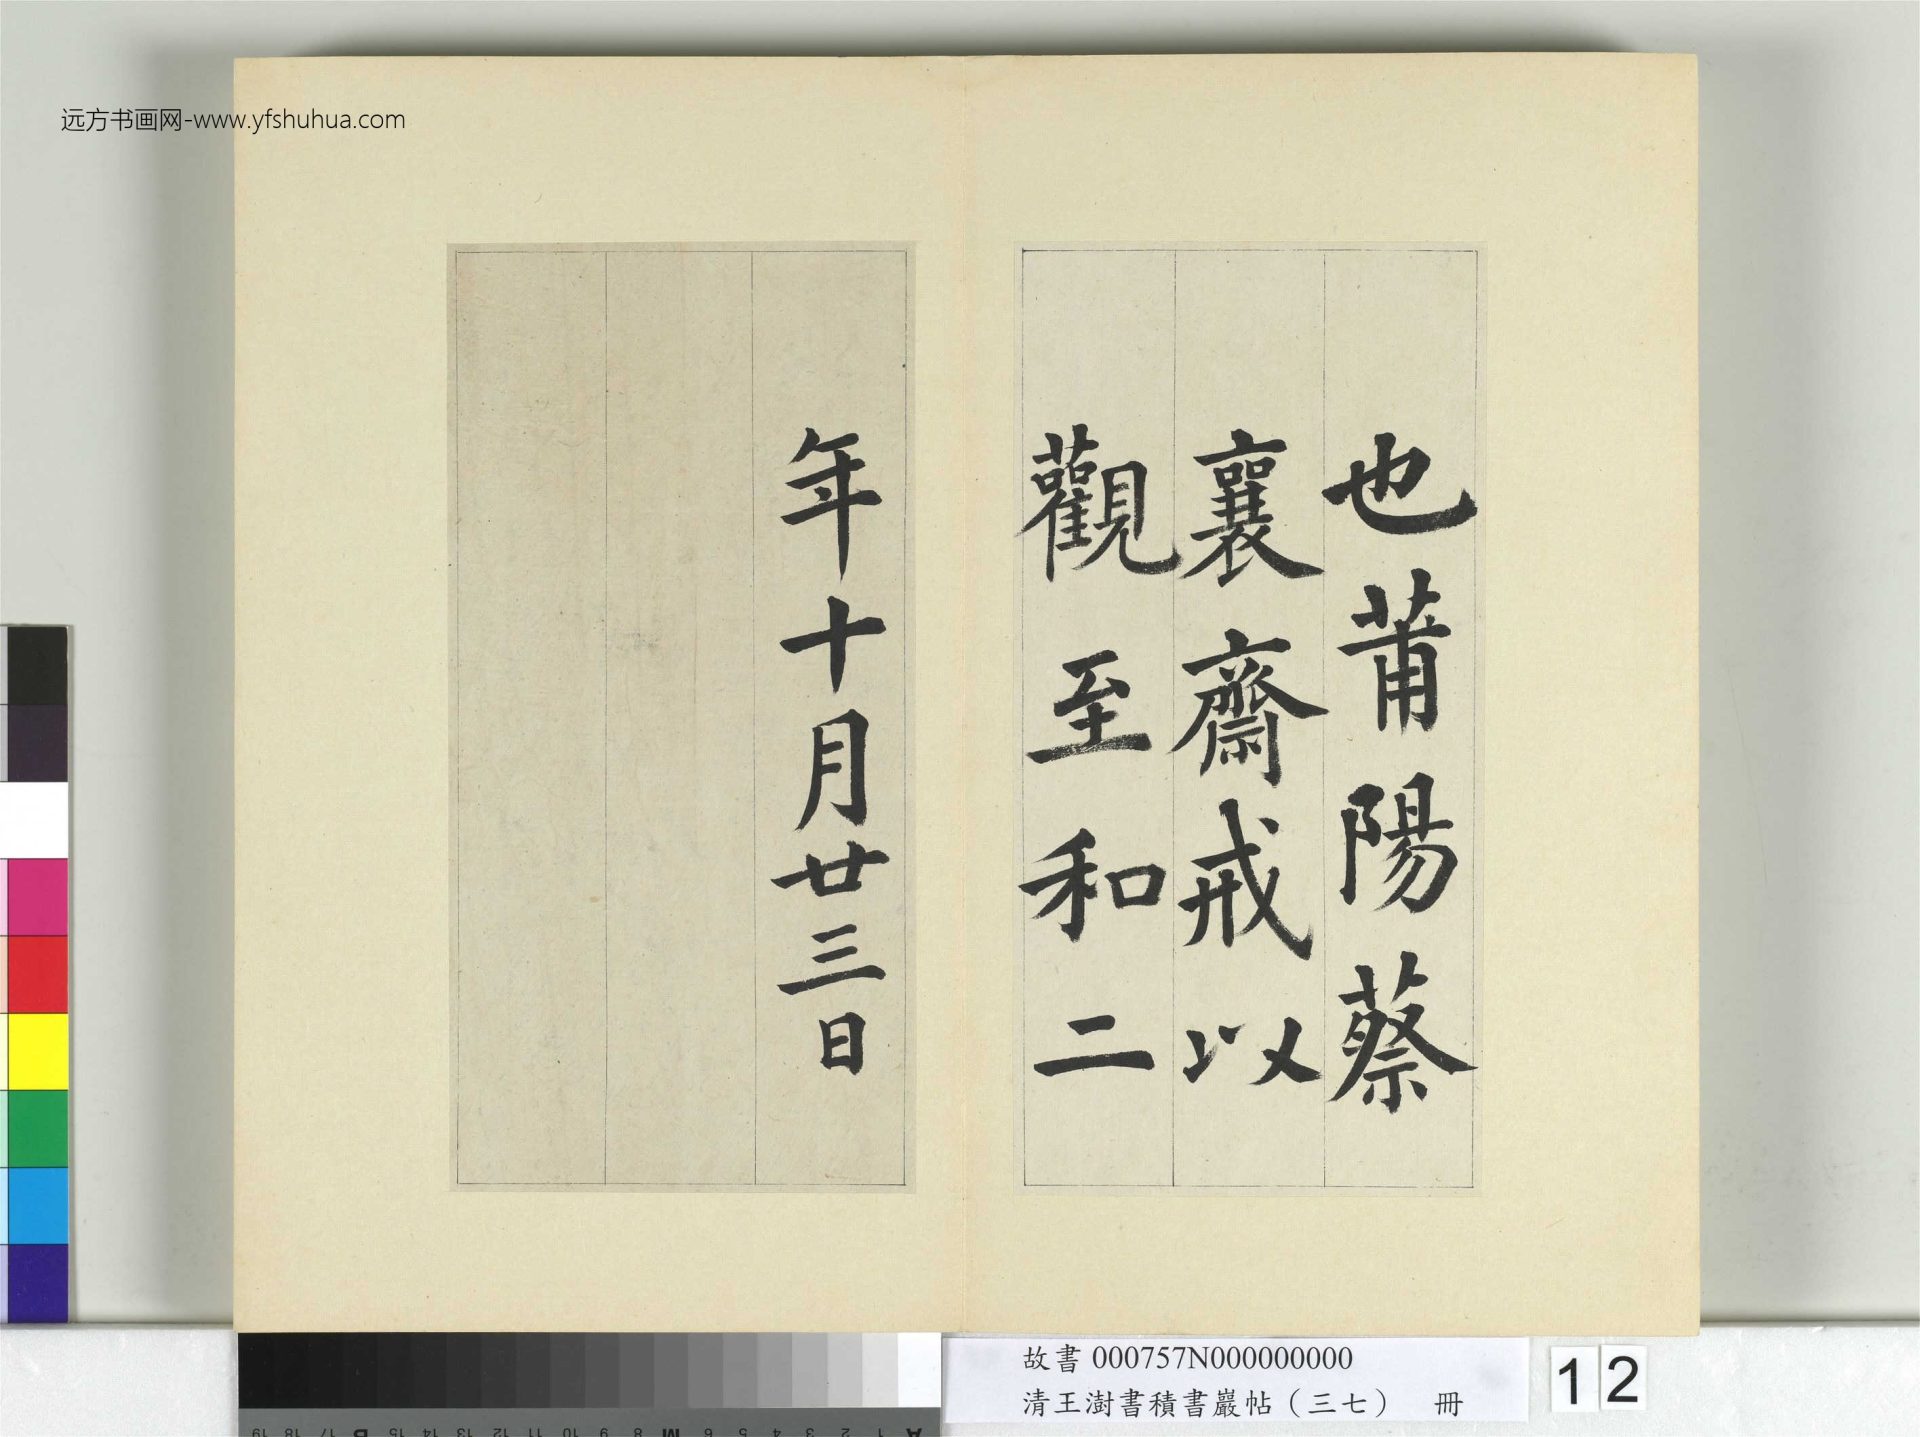 远方书画网-www.yfshuhua.com
也莆陽蔡
襄齋戒以
觀至和二
年十月廿三日
故書 000757N000000000
清王澍書積書巖帖（三七） 冊
12